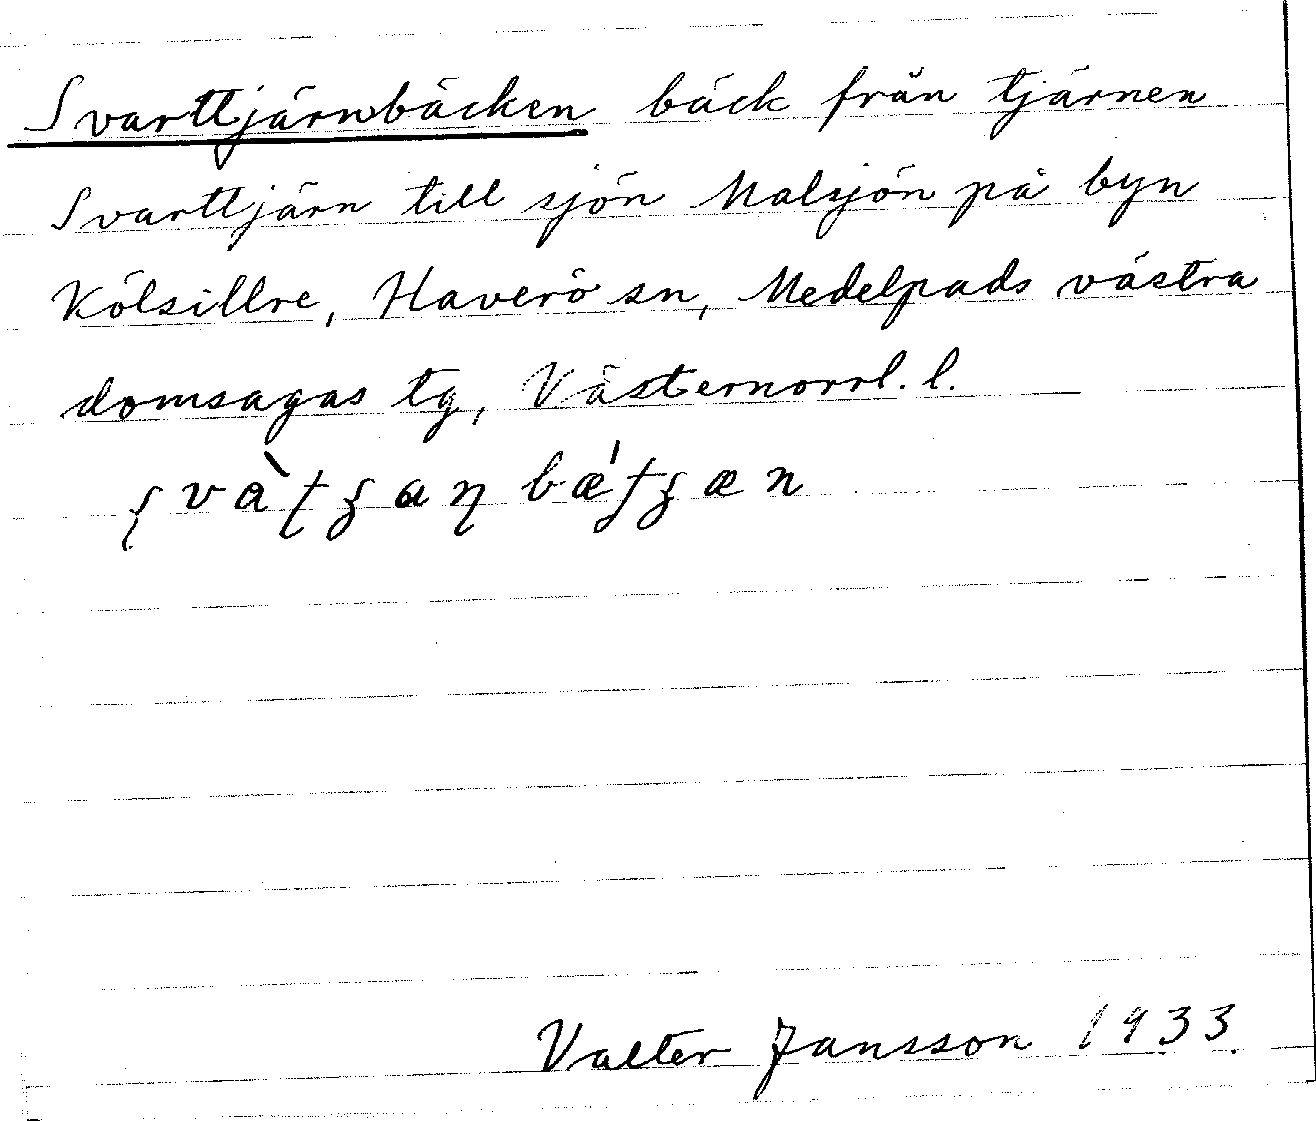 Svarttjärnbäcken bäck från tjärnen
Svarttjärn till sjön Malsjön på byn
Kölsillre, Haverö sn, Medelpads västra
domsagas tg, Västernorrl. l.
Valter Jansson 1933.